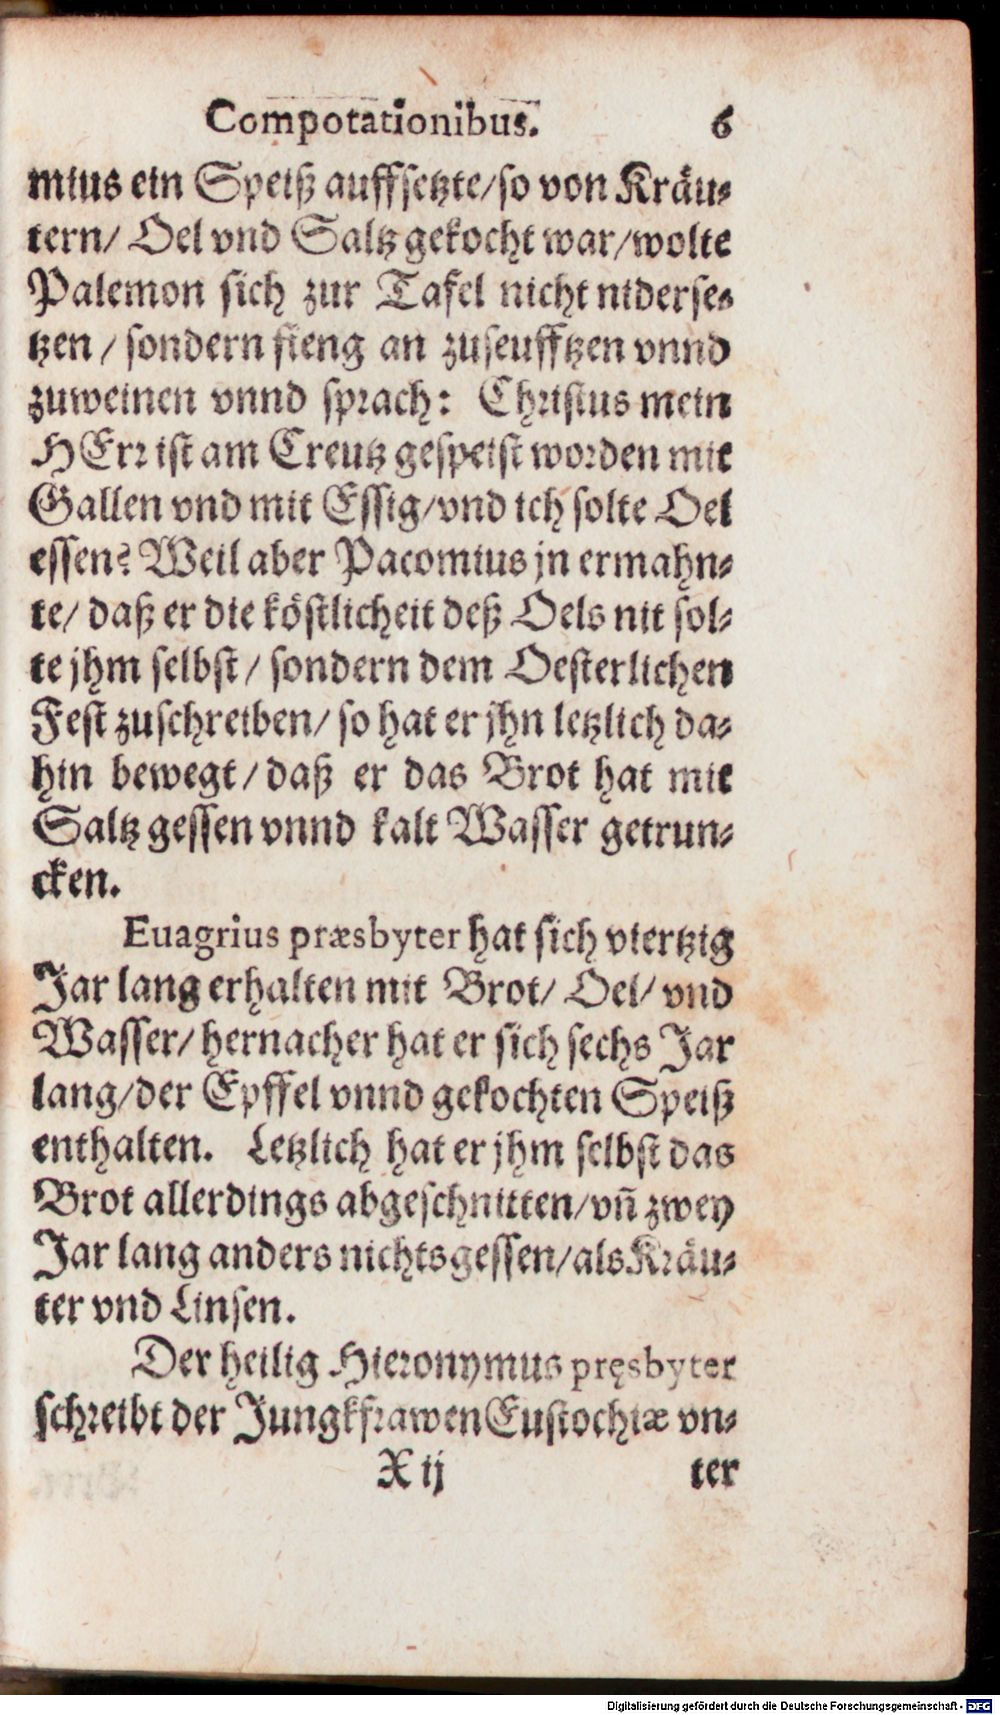 Compotationibus. 6
mius ein Speiß auffsetzte/so von Kräu-
tern/ Oel vnd Saltz gekocht war/wolte
Palemon sich zur Tafel nicht niderse-
tzen / sondern fieng an zuseufftzen vnnd
zuweinen vnnd sprach: Christus mein
HErr ist am Creutz gespeist worden mit
Gallen vnd mit Essig/vnd ich solte Oel
essen? Weil aber Pacomius jn ermahn-
te/ daß er die köstlicheit deß Oels nit sol-
te jhm selbst/ sondern dem Oesterlichen
Fest zuschreiben/ so hat er jhn letzlich da-
hin bewegt/daß er das Brot hat mit
Saltz gessen vnnd kalt Wasser getrun-
cken.
Euagrius præsbyter hat sich viertzig
Jar lang erhalten mit Brot/ Oel/ vnd
Wasser/ hernacher hat er sich sechs Jar
lang/der Epffel vnnd gekochten Speiß
enthalten. Letzlich hat er jhm selbst das
Brot allerdings abgeschnitten/vñ zwey
Jar lang anders nichts gessen/als Kräu-
ter vnd Linsen.
Der heilig Hieronymus pręsbyter
schreibt der Jungkfrawen Eustochiæ vn-
X ij ter
Digitalisierung gefördert durch die Deutsche Forschungsgemeinschaft - DFG